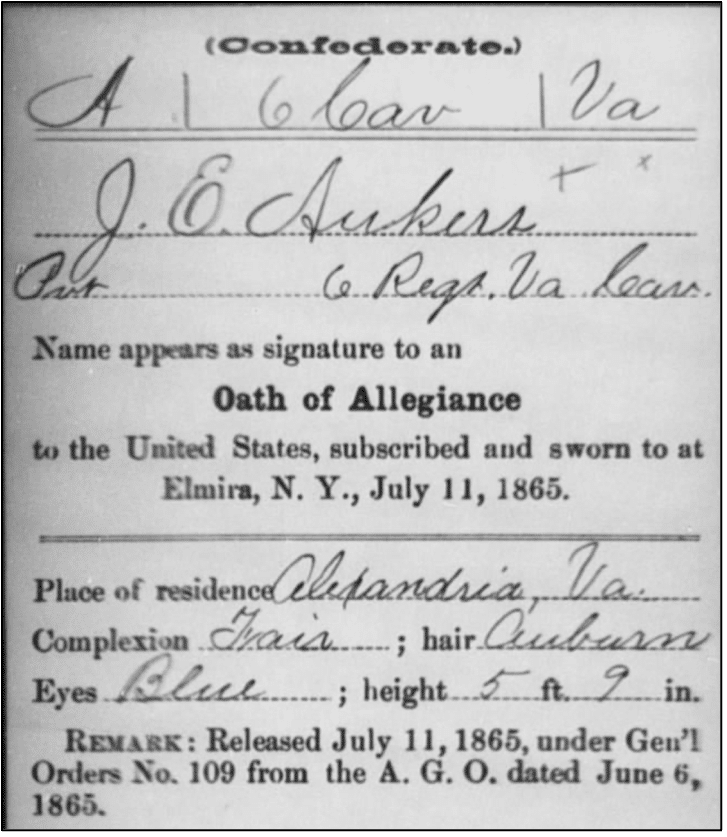 (Confederate.)
A | 6 Cav | Va
J. E. Aukers + x
Pvt 6 Regt. Va Cav.
Name appears as signature to an
Oath of Allegiance
to the United States, subscribed and sworn to at
Elmira, N. Y., July 11, 1865.
Place of residence Alexandria, Va.
Complexion Fair ; hair Auburn
Eyes Blue ; height 5 ft. 9 in.
REMARK: Released July 11, 1865, under Gen'l
Orders No. 109 from the A. G. O. dated June 6,
1865.